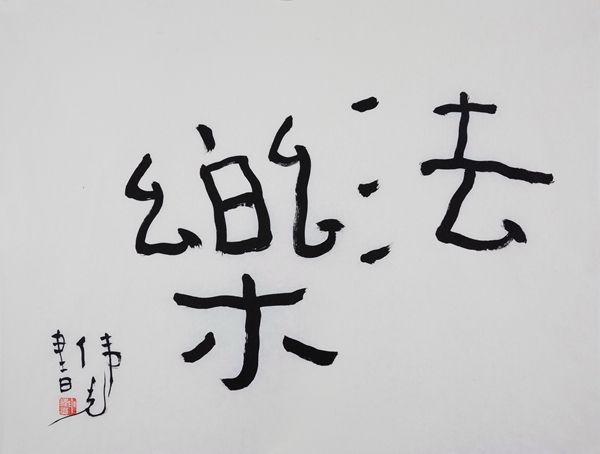 法樂
伟光
書